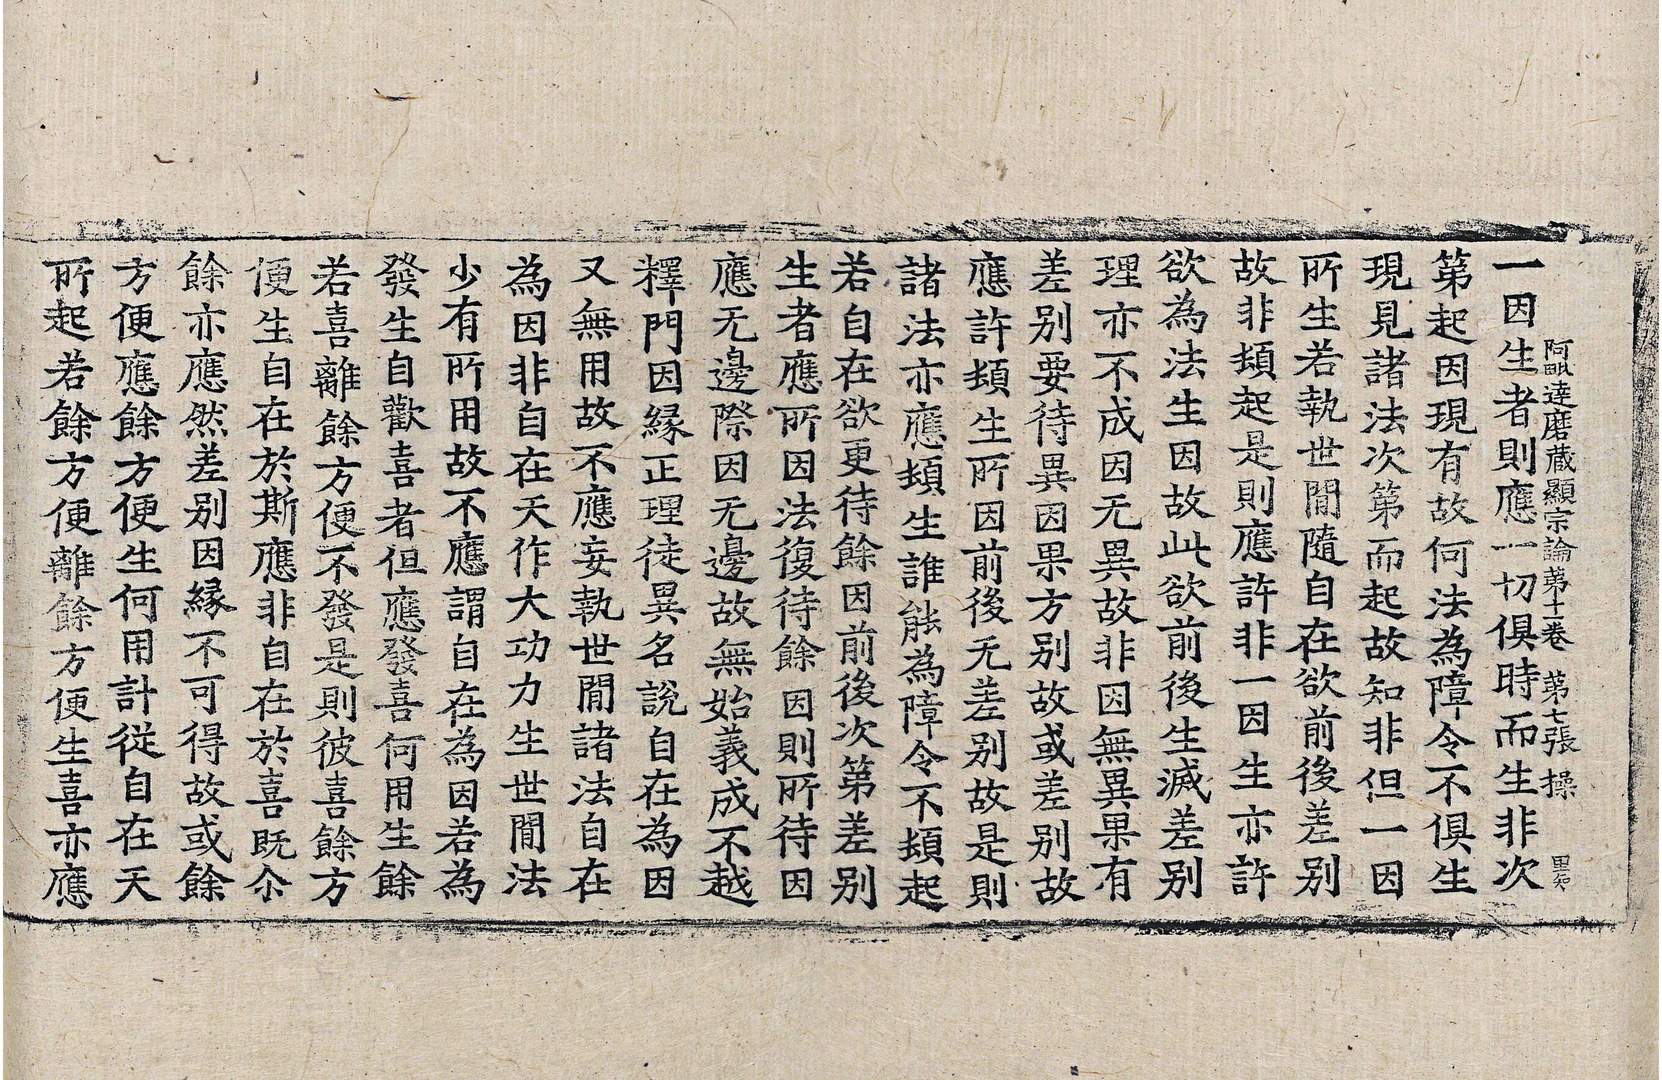 阿毗達磨藏顯宗論第十二卷 第七張 操
一因生者則應一切俱時而生非次
第起因現有故何法為障令不俱生
現見諸法次第而起故知非但一因
所生若執世閒隨自在欲前後差別
故非頓起是則應許非一因生亦許
欲為法生因故此欲前後生滅差別
理亦不成因无異故非因無異果有
差別要待異因果方別故或差別故
應許頓生所因前後无差別故是則
諸法亦應頓生誰能為障令不頓起
若自在欲更待餘因前後次第差別
生者應所因法復待餘因則所待因
應无邊際因无邊故無始義成不越
釋門因緣正理徒異名說自在為因
又無用故不應妄執世閒諸法自在
為因非自在天作大功力生世閒法
少有所用故不應謂自在為因若為
發生自歡喜者但應發喜何用生餘
若喜離餘方便不發是則彼喜餘方
便生自在於斯應非自在於喜既尒
餘亦應然差別因緣不可得故或餘
方便應餘方便生何用計從自在天
所起若餘方便離餘方便生喜亦應